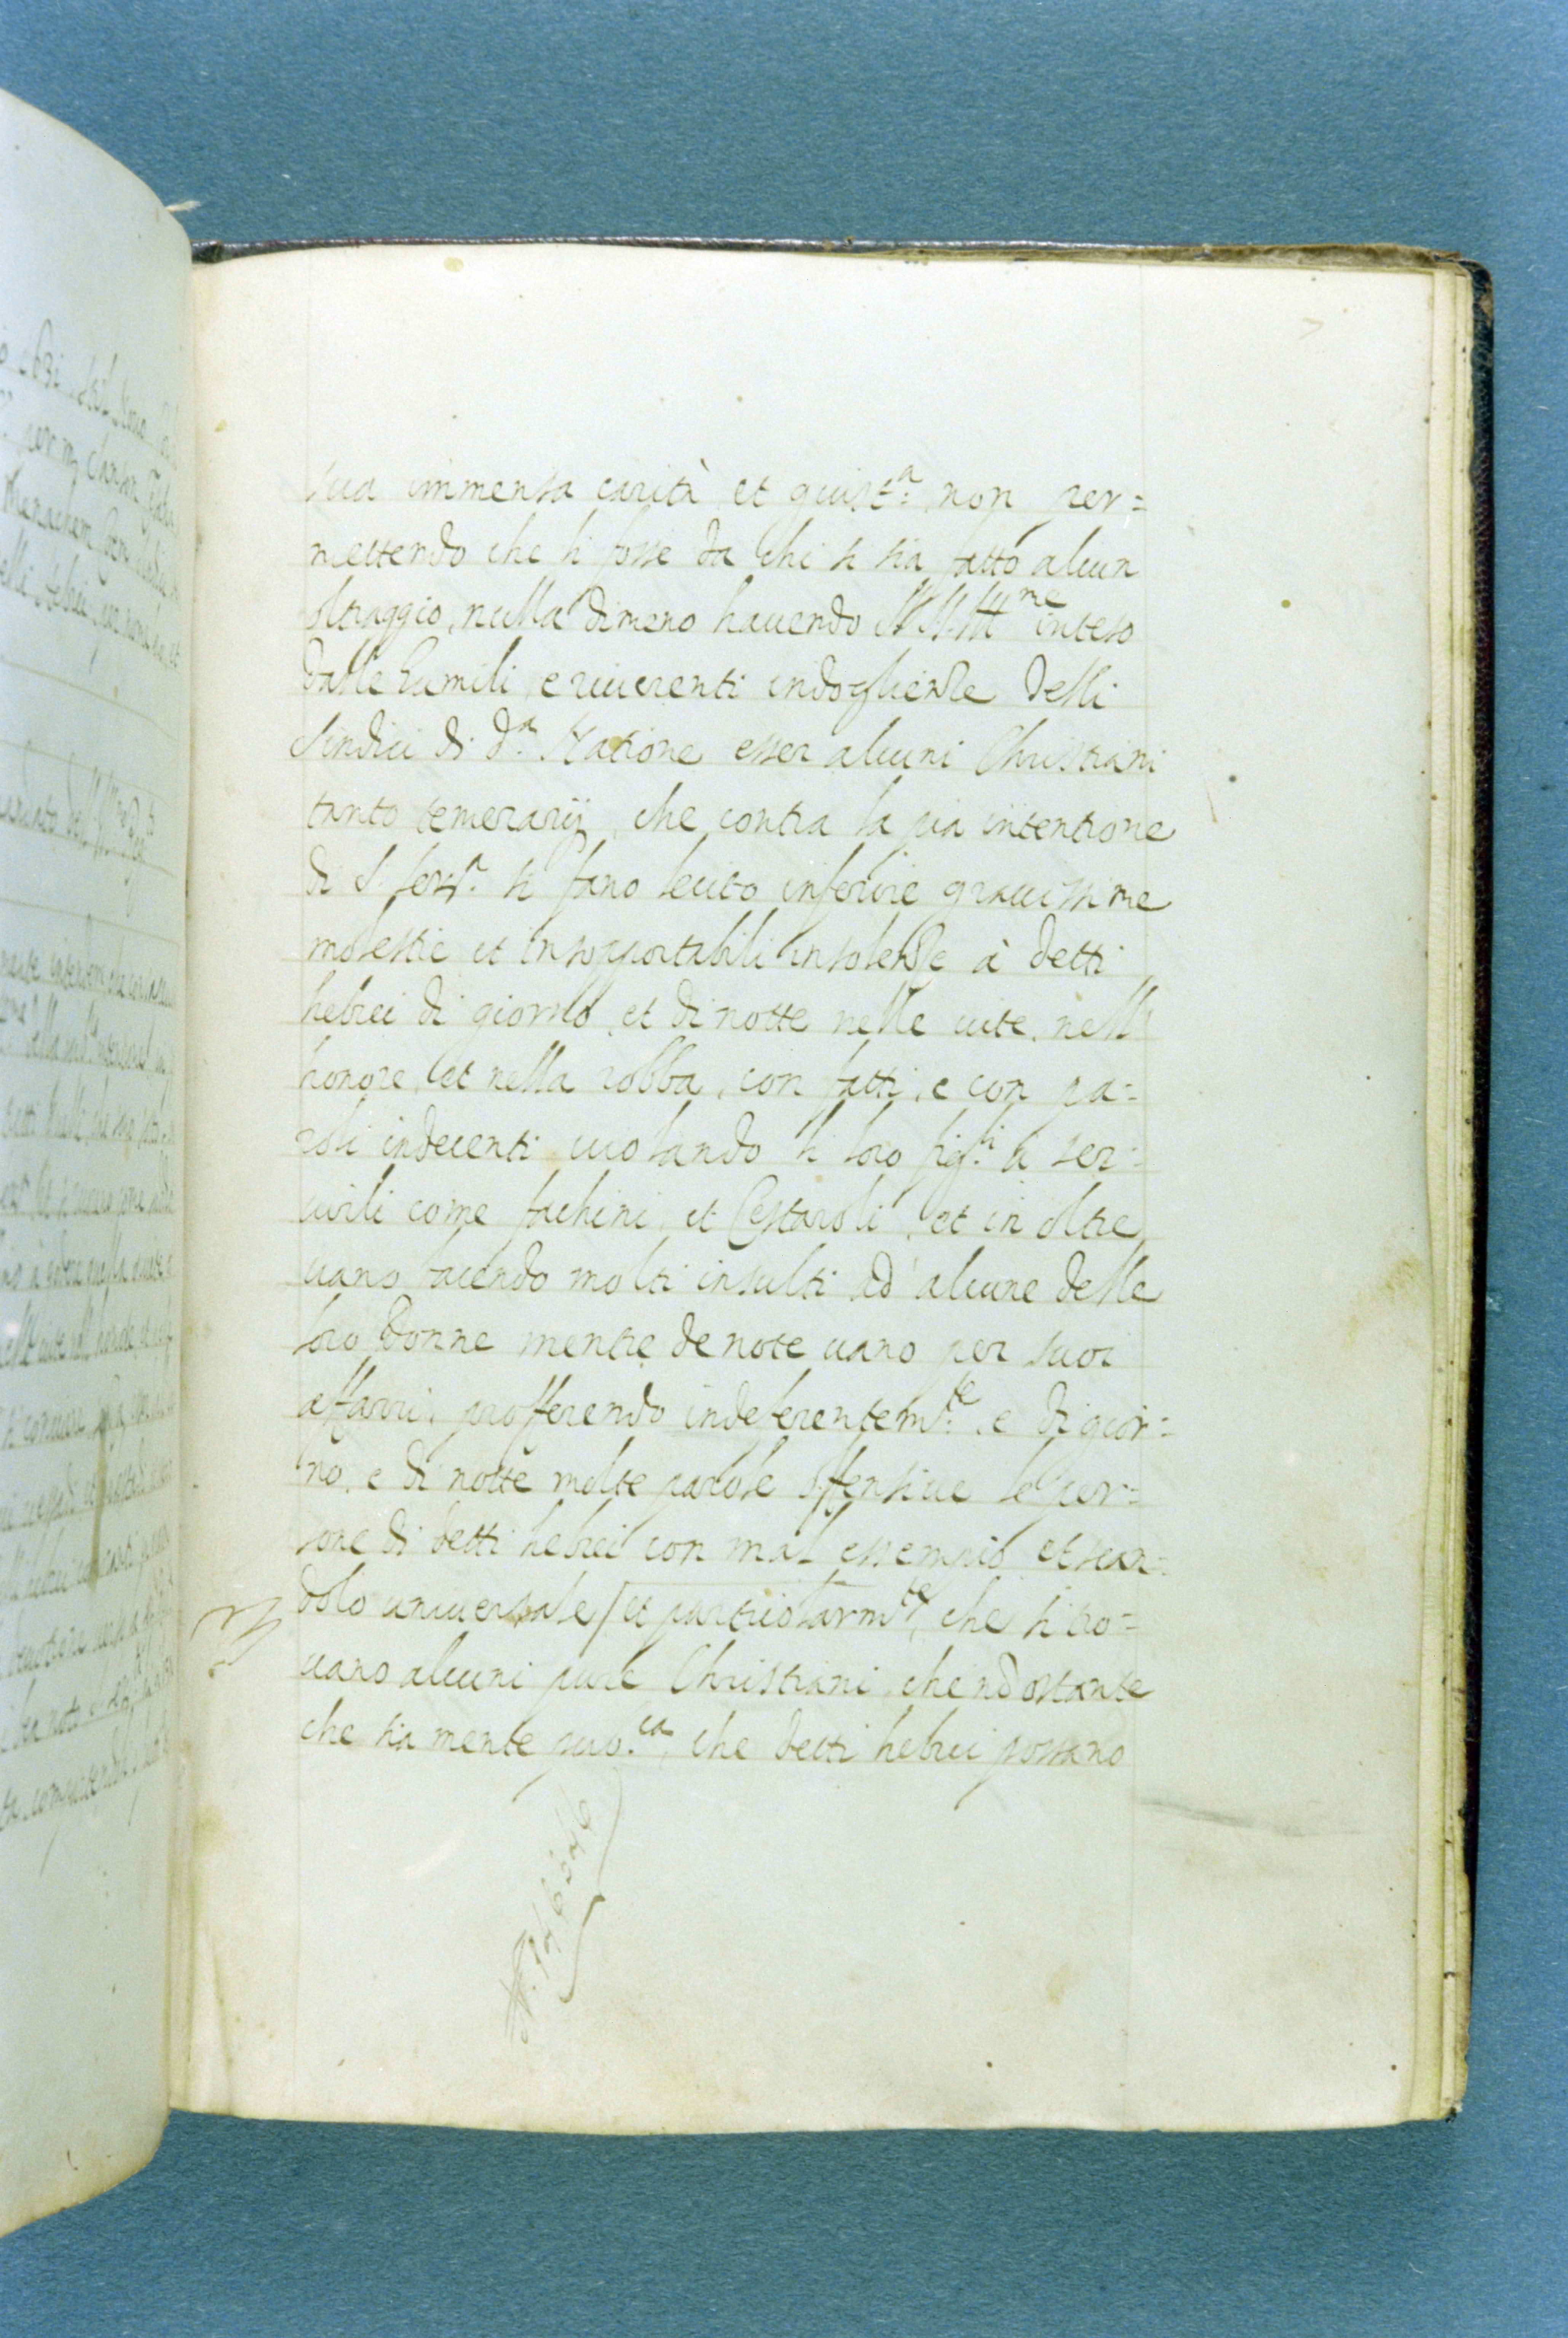 sua immensa carità et giust.a non per=
mettendo che li fosse da chi si sia fatto alcun
oltraggio, nulla dimeno hauendo SS. SS. Ill.me inteso
dalle humili, e riuerenti indoglienze delli
sindici di d.a Natione esser alcuni Christiani
tanto temerarij, che contra la pia intentione
di S. Ser.a si fano lecito inferire grauissime
molestie et insopportabili insolenze à detti
hebrei di giorno, et di notte nelle uite, nell'
honore, et nella robba, con fatti, e con pa=
role indecenti uiolando li loro fig.li li ser=
uirli come fachini, et Cestaroli, et in oltre
uano facendo molti insulti ad' alcune delle
loro Donne mentre de note uano per suoi
affarri, profferendo indeferentem.te, e di gior=
no, e di notte molte parole offensiue le per=
sone di detti hebrei con mal essempio et scan=
dolo uniuersale, et particolarm.te, che si tro=
uano alcuni pure Christiani, che nõ ostante
che sia mente pub.ca, che detti hebrei possano